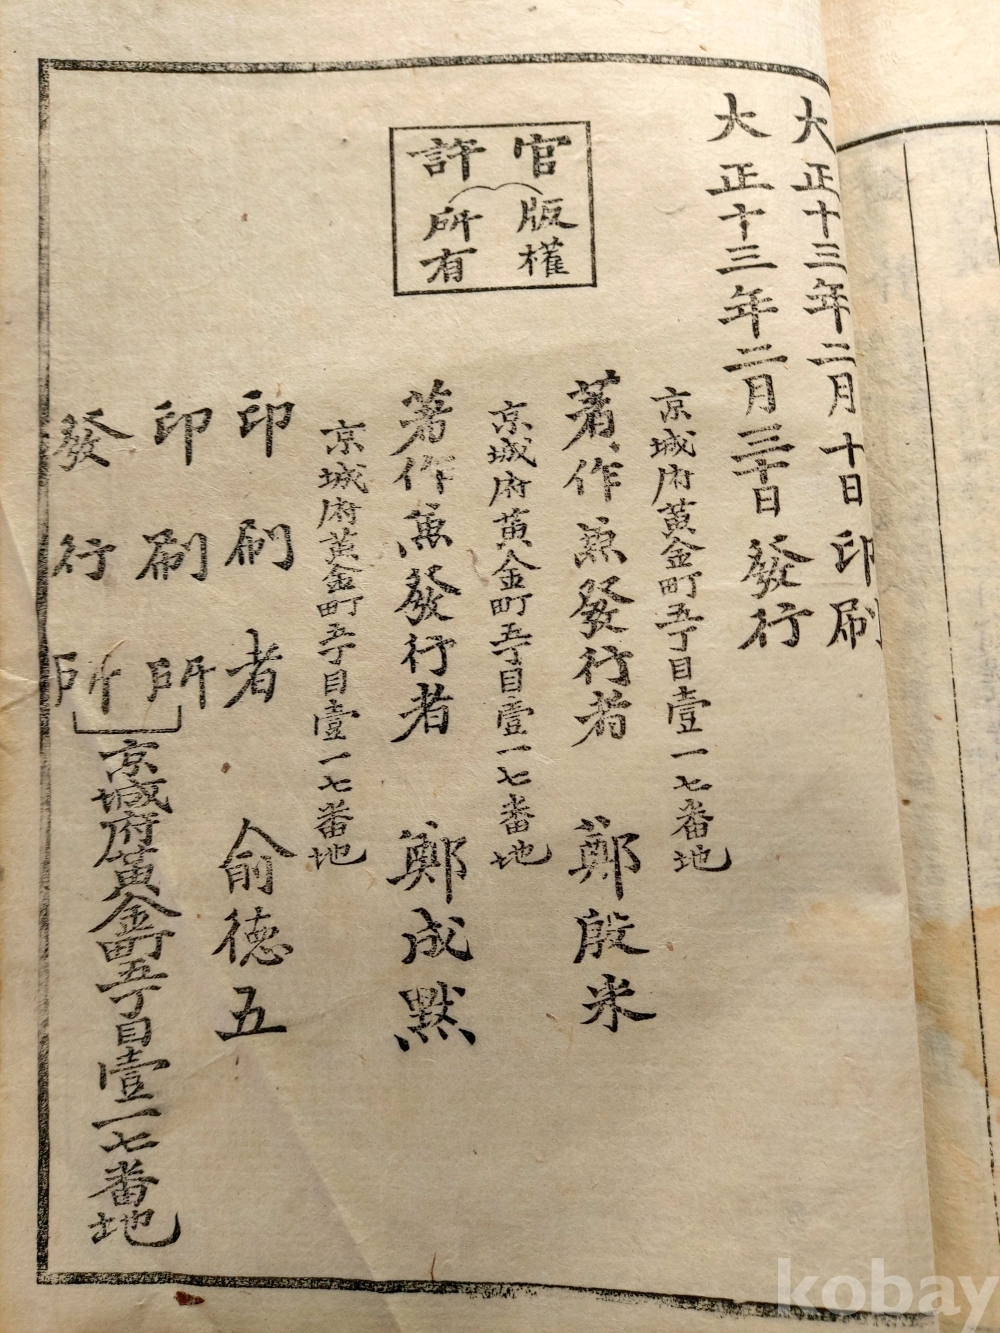 大正十三年二月十日印刷
大正十三年二月三十日發行
官許
版權所有
京城府黃金町五丁目壹一七番地
著作兼發行者 鄭殷米
京城府黃金町五丁目壹一七番地
著作兼發行者 鄭成默
京城府黃金町五丁目壹一七番地
印刷者 俞德五
印刷所
發行所
京城府黃金町五丁目壹一七番地
kobay